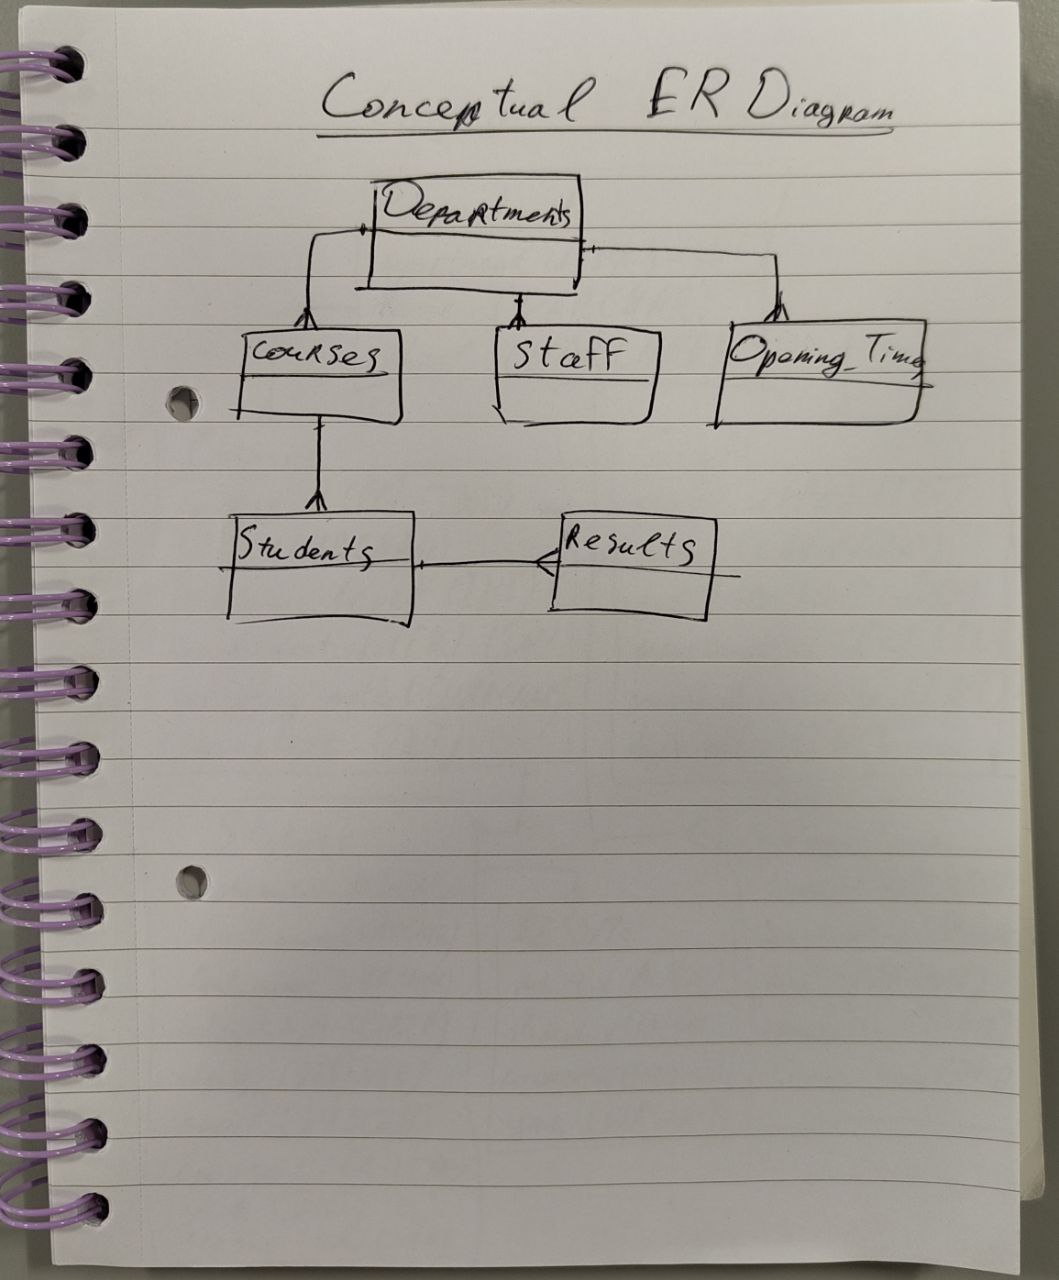 Conceptual ER Diagram
Departments
Courses
Staff
Opening_Times
Students
Results